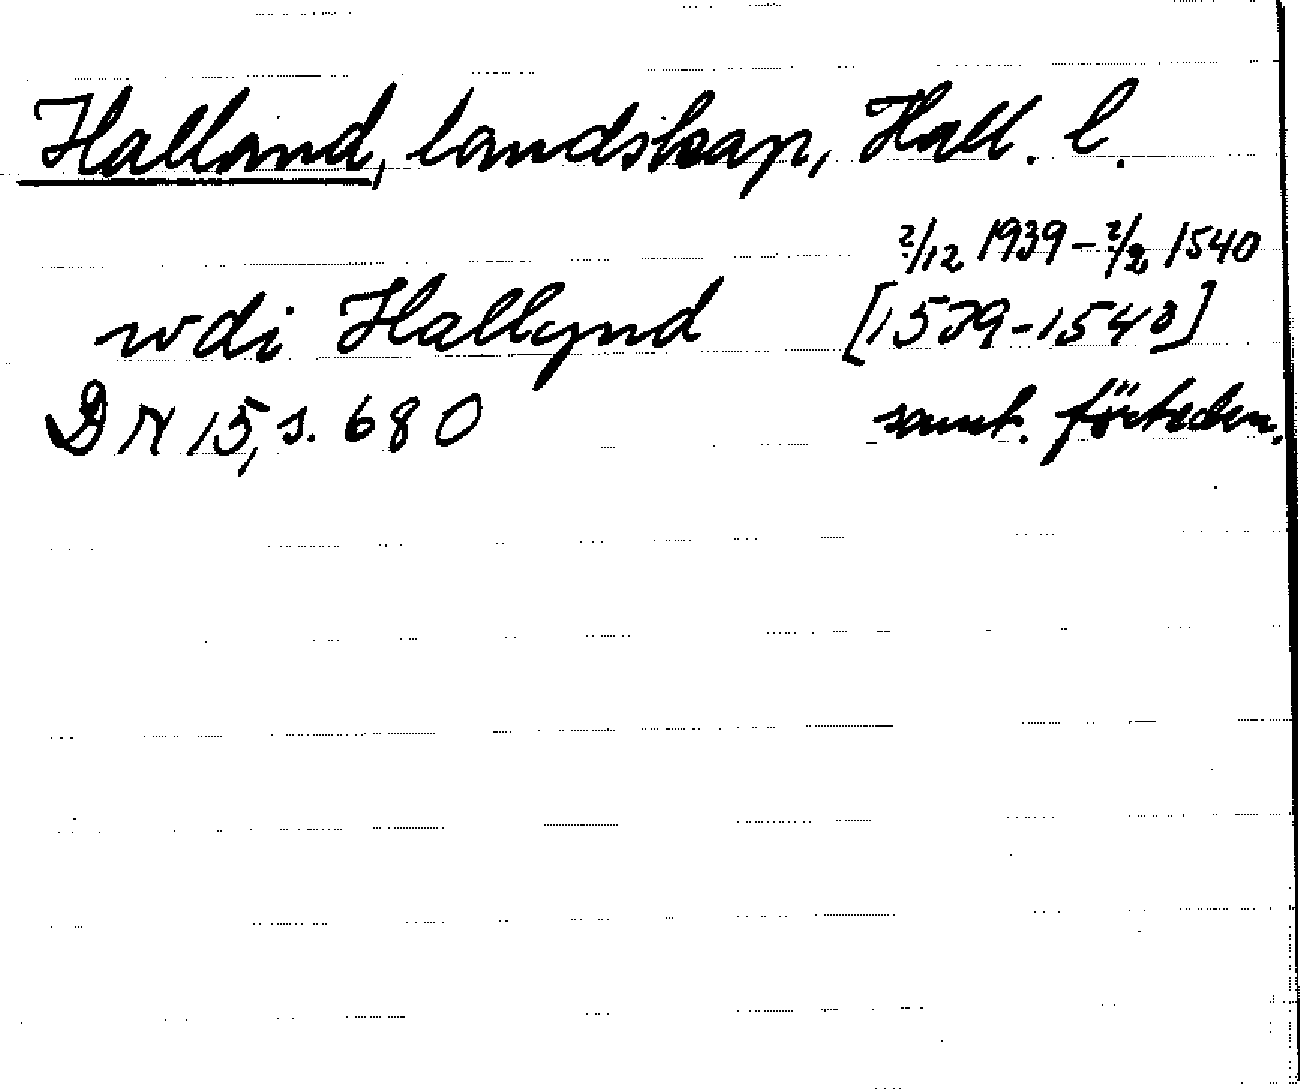 Halland, landskap, Hall. l.
2/12 1939 - 2/2 1540
wdi Hallynd [1529-1540]
DN 15, s. 680 samt. förteckn.